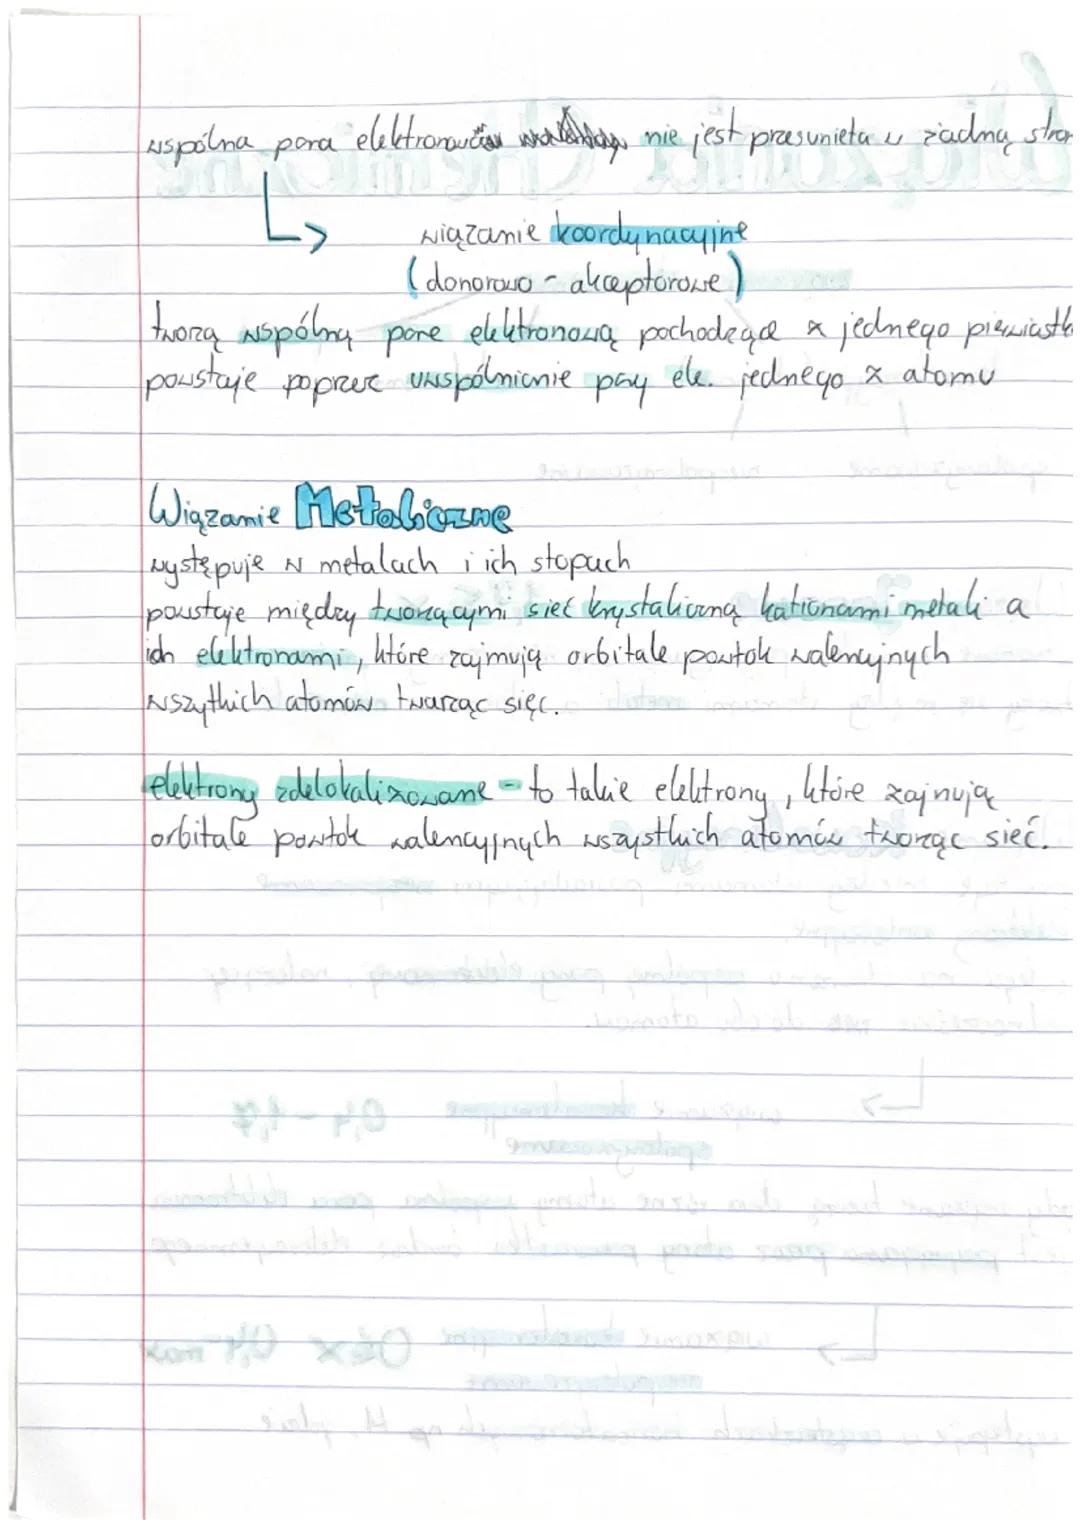 wspólna para elektronowa nie jest przesunieta w żadną stron
wiązanie koordynacyjne
(donorowo - akceptorowe)
tworzą wspólną pare elektronową pochodzące z jednego pierwiastk
powstaje poprzez uwspólnienie pary ele. jednego z atomu
Wiązanie Metaliczne
występuje w metalach i ich stopach
powstaje między tworzącymi sieć krystaliczną kationami metali a
ich elektronami, które zajmują orbitale powłok walencyjnych
wszytkich atomów twarząc sięć.
elektrony zdelokalizowane - to takie elektrony, które zajmują
orbitale powłok walencyjnych wszystkich atomów tworząc sieć.